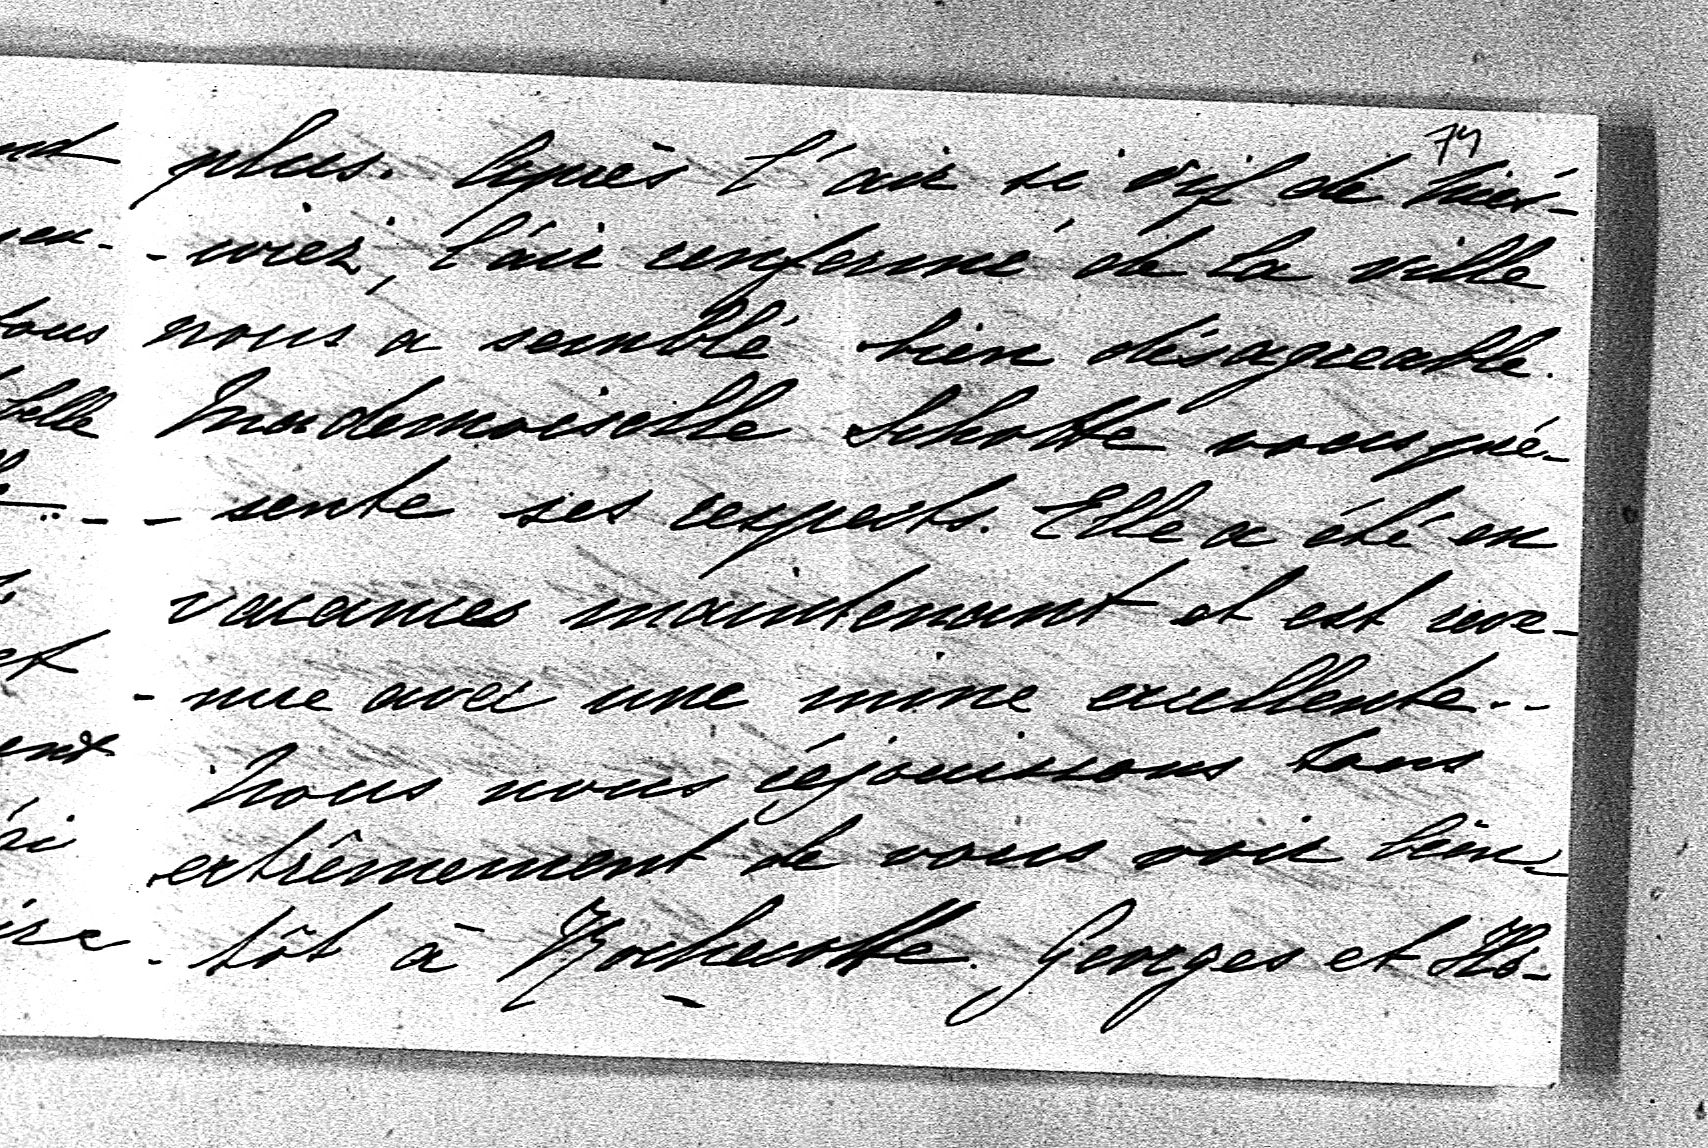 74
plus. Après l'air si vif de
l'air renfermé de la ville
nous a semblé bien désagréable.
Mademoiselle Schotte vous pré-
- sente ses respects. Elle a été en
vacances maintenant et est reve-
- nue avec une mine excellente..
Nous nous réjouissons tous
extrêmement de vous voir bien-
- tôt à Rochecotte. Georges et